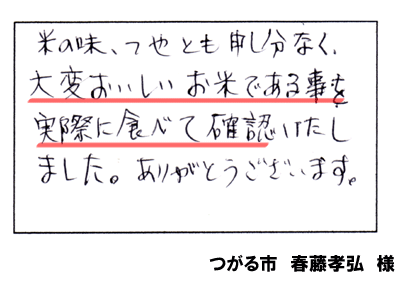 米の味、つやとも申し分なく、
大変おいしいお米である事を
実際に食べて確認いたし
ました。ありがとうございます。
つがる市 春藤孝弘 様